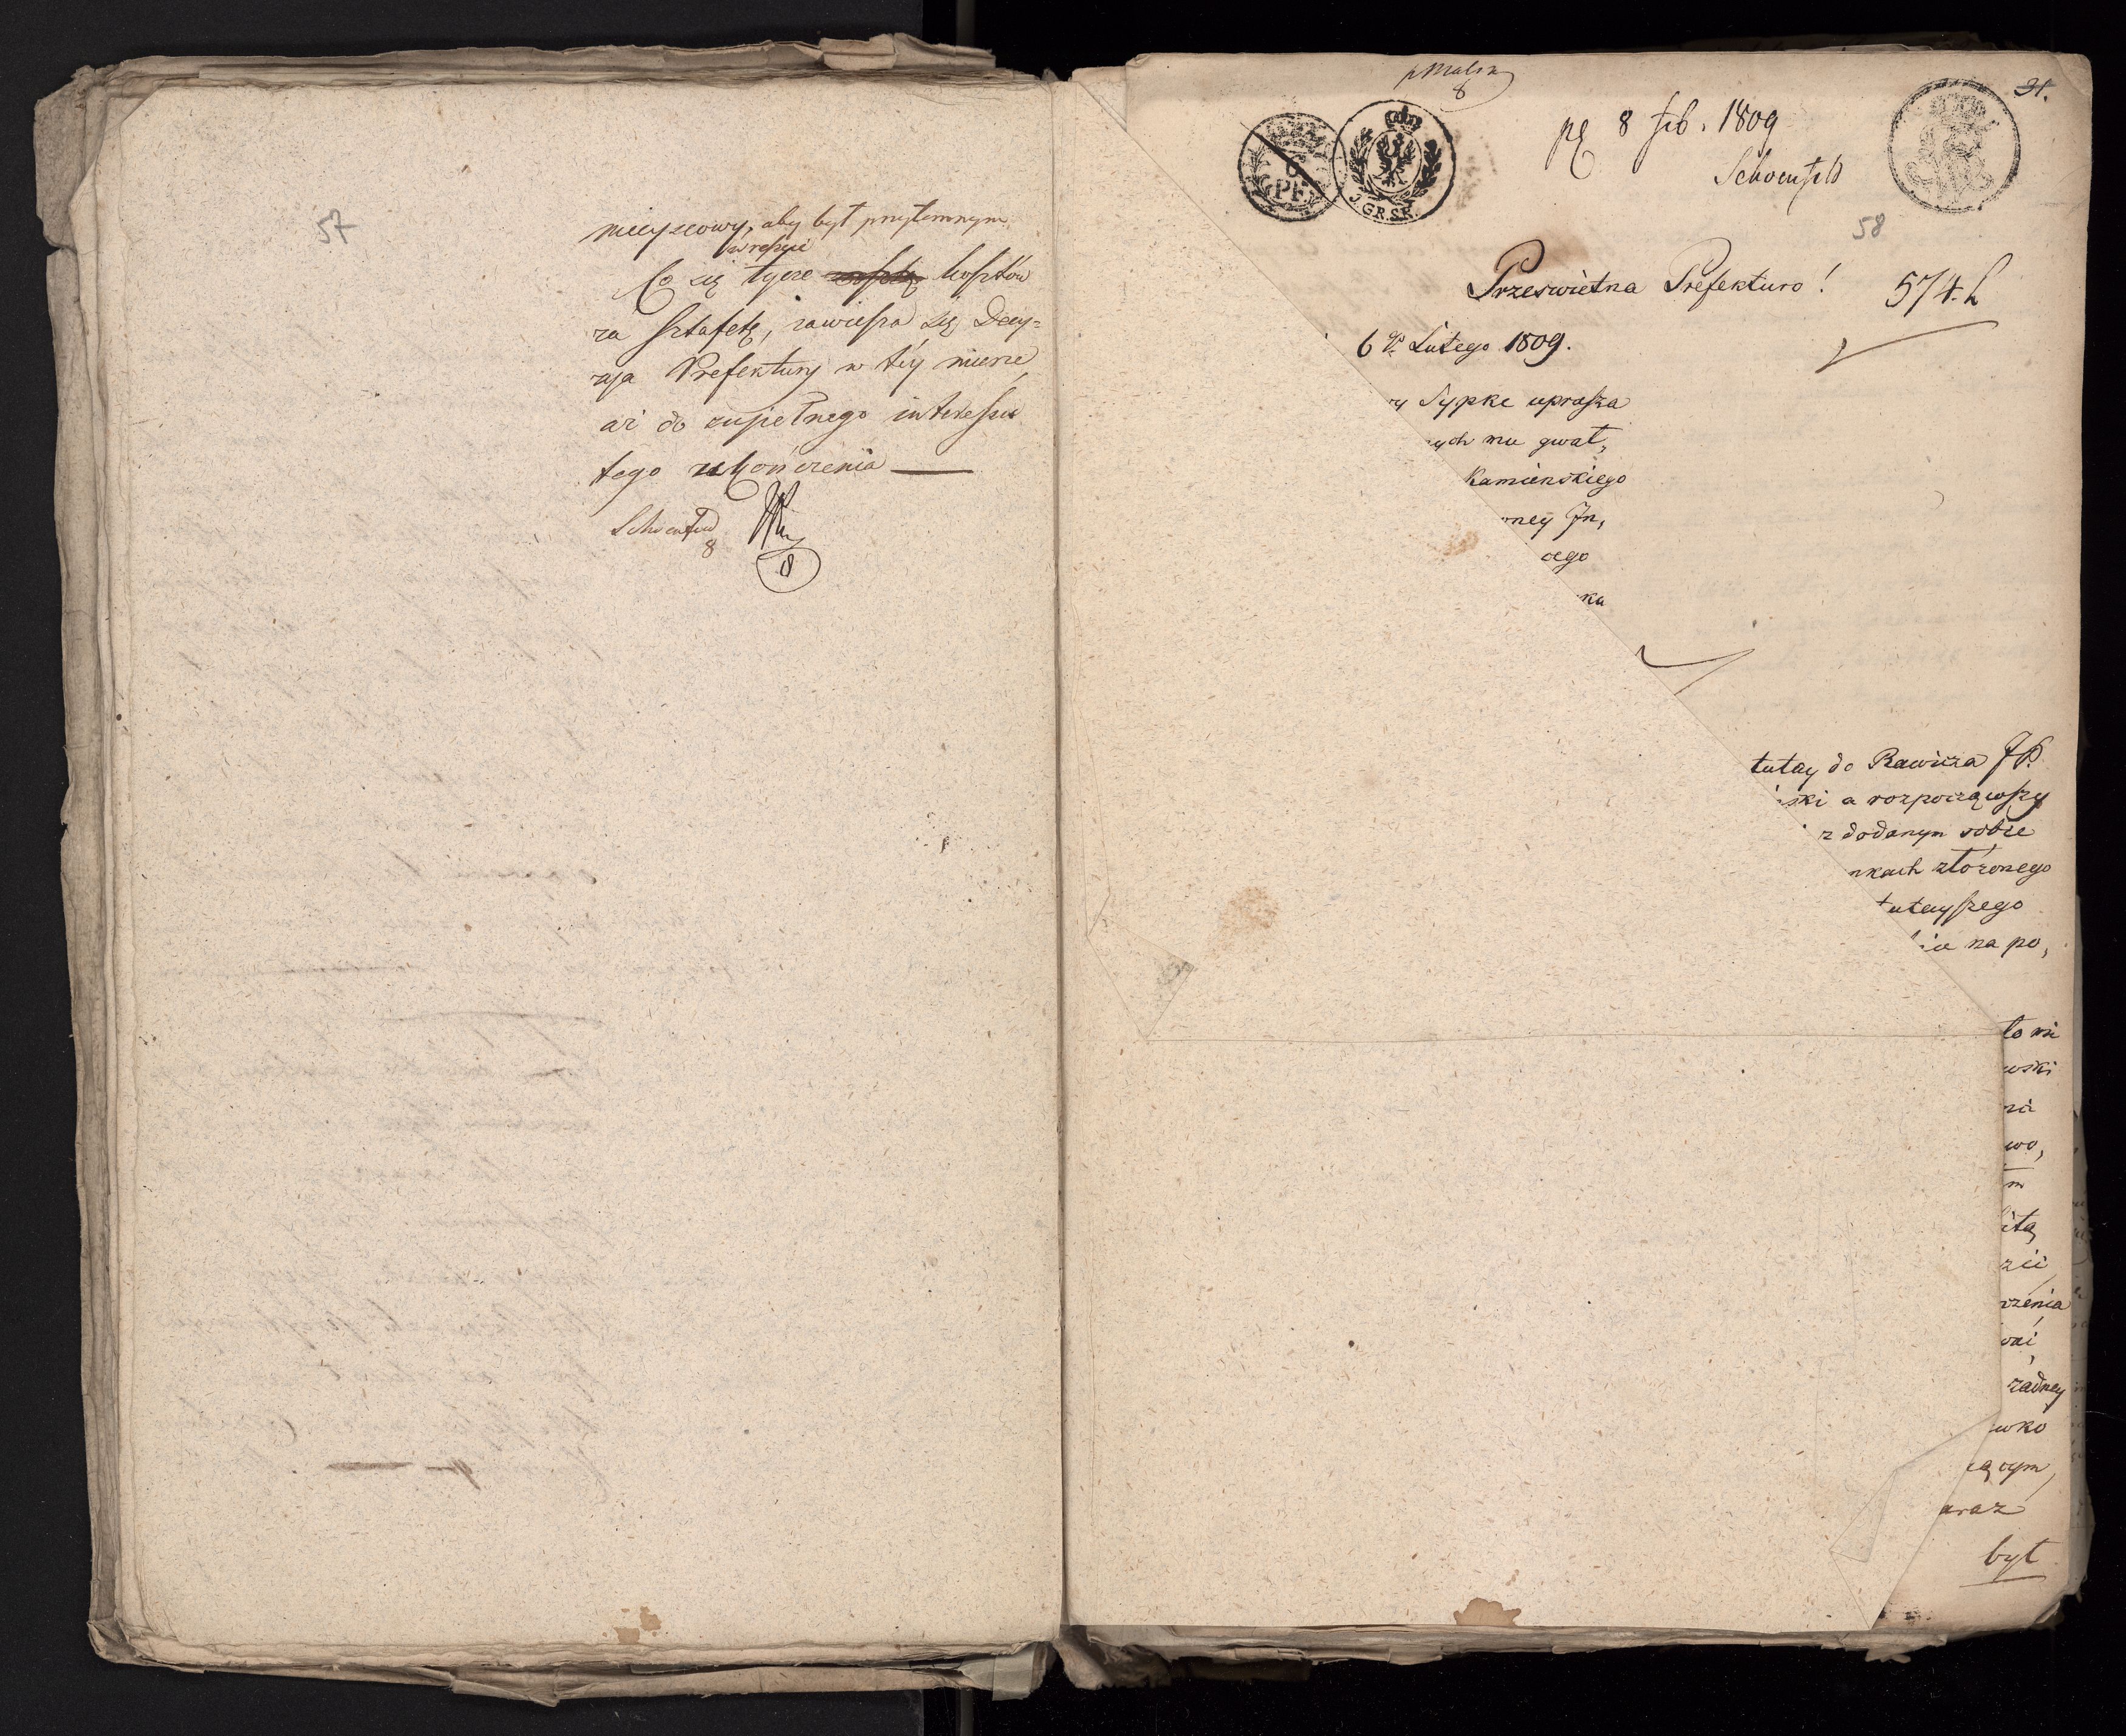 57
mieyscowy, aby był przytomnym
w reszcie
Co się tycze kosztów
za sztafetę, zawiesza się Decy-
zya Prefektury w tey mierze,
aż do zupełnego interessu
tego ukończenia —
Schoenfeld
8
8
31.
8 feb. 1809
Schoenfeld
6
PF.
3 GR.SR.
58
Prześwietna Prefekturo!
574.h
6 go Lutego 1809.
ry Sypke uprasza
ych mu gwał,
Kamienskiego
oney In,
cego
ka
tutay do Rawicza JP.
ski a rozpocząwszy
z dodanym sobie
nkach złożonego
tutayszego
ie na po,
to mi
wski
wo,
m
itą
zenia
żadney
wko
ącym,
araz
był